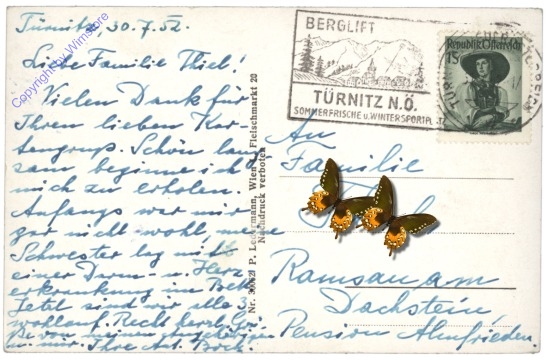 Türnitz, 30.7.52.
Liebe Familie Thiel!
Vielen Dank für
Ihren lieben Kar-
tengruß. Schön lang-
sam beginne ich
mich zu erholen.
Anfangs war mir
gar nicht wohl, meine
Schwester lag mit
einer Darm- u. Herz
erkrankung im Bett
Jetzt sind wir alle 3
wohlauf. Recht herzl. Grü
ße von meinen
u. mir. Ihre Ant. Bock.
Copyright by Wimstore
BERGLIFT
TÜRNITZ N.Ö.
SOMMERFRISCHE U. WINTERSPORTPL.
Republik Österreich
1S
Nr. 30062 P. Ledermann, Wien I, Fleischmarkt 20
Nachdruck verboten
An
Familie
Ramsau am
Dachstein
Pension Almfrieden.